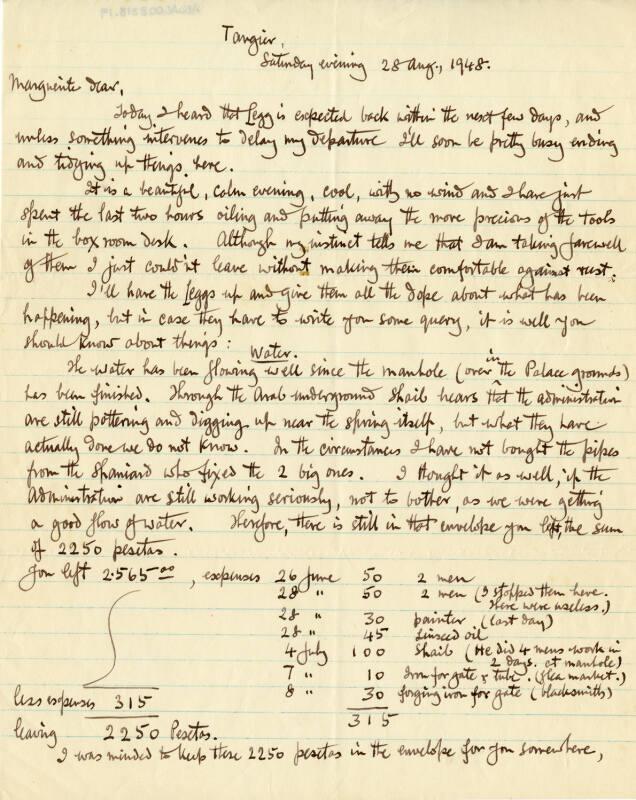 Tangier,
Saturday evening 28 Aug., 1948.
Marguerite dear,
Today I heard that Legg is expected back within the next few days, and
unless something intervenes to delay my departure I'll soon be pretty busy ending
and tidying up things here.
It is a beautiful, calm evening, cool, with no wind and I have just
spent the last two hours oiling and putting away the more precious of the tools
in the box room desk. Although my instinct tells me that I am taking farewell
of them I just could'nt leave without making them comfortable against rust.
I'll have the Leggs up and give them all the dope about what has been
happening, but in case they have to write you some query, it is well you
should know about things:
Water.
The water has been flowing well since the manhole (over in the Palace grounds)
has been finished. Through the Arab underground Shaib hears that the administration
are still pottering and digging up near the spring itself, but what they have
actually done we do not know. In the circumstances I have not bought the pipes
from the Spaniard who fixed the 2 big ones. I thought it as well, if the
Administration are still working seriously, not to bother, as we were getting
a good flow of water. Therefore, there is still in that envelope you left, the sum
of 2250 pesetas.
You left 2.565.00, expenses 26 June 50 2 men
28 " 50 2 men (I stopped them here.
There were useless.)
28 " 30 painter (last day)
28 " 45 Linseed oil
4 July 100 Shaib (He did 4 mens work in
2 days. at manhole)
7 " 10 Iron for gate & tube. (flea market.)
8 " 30 forging iron for gate (blacksmiths)
less expenses 315
315
leaving 2250 Pesetas.
I was minded to keep these 2250 pesetas in the envelope for you somewhere,